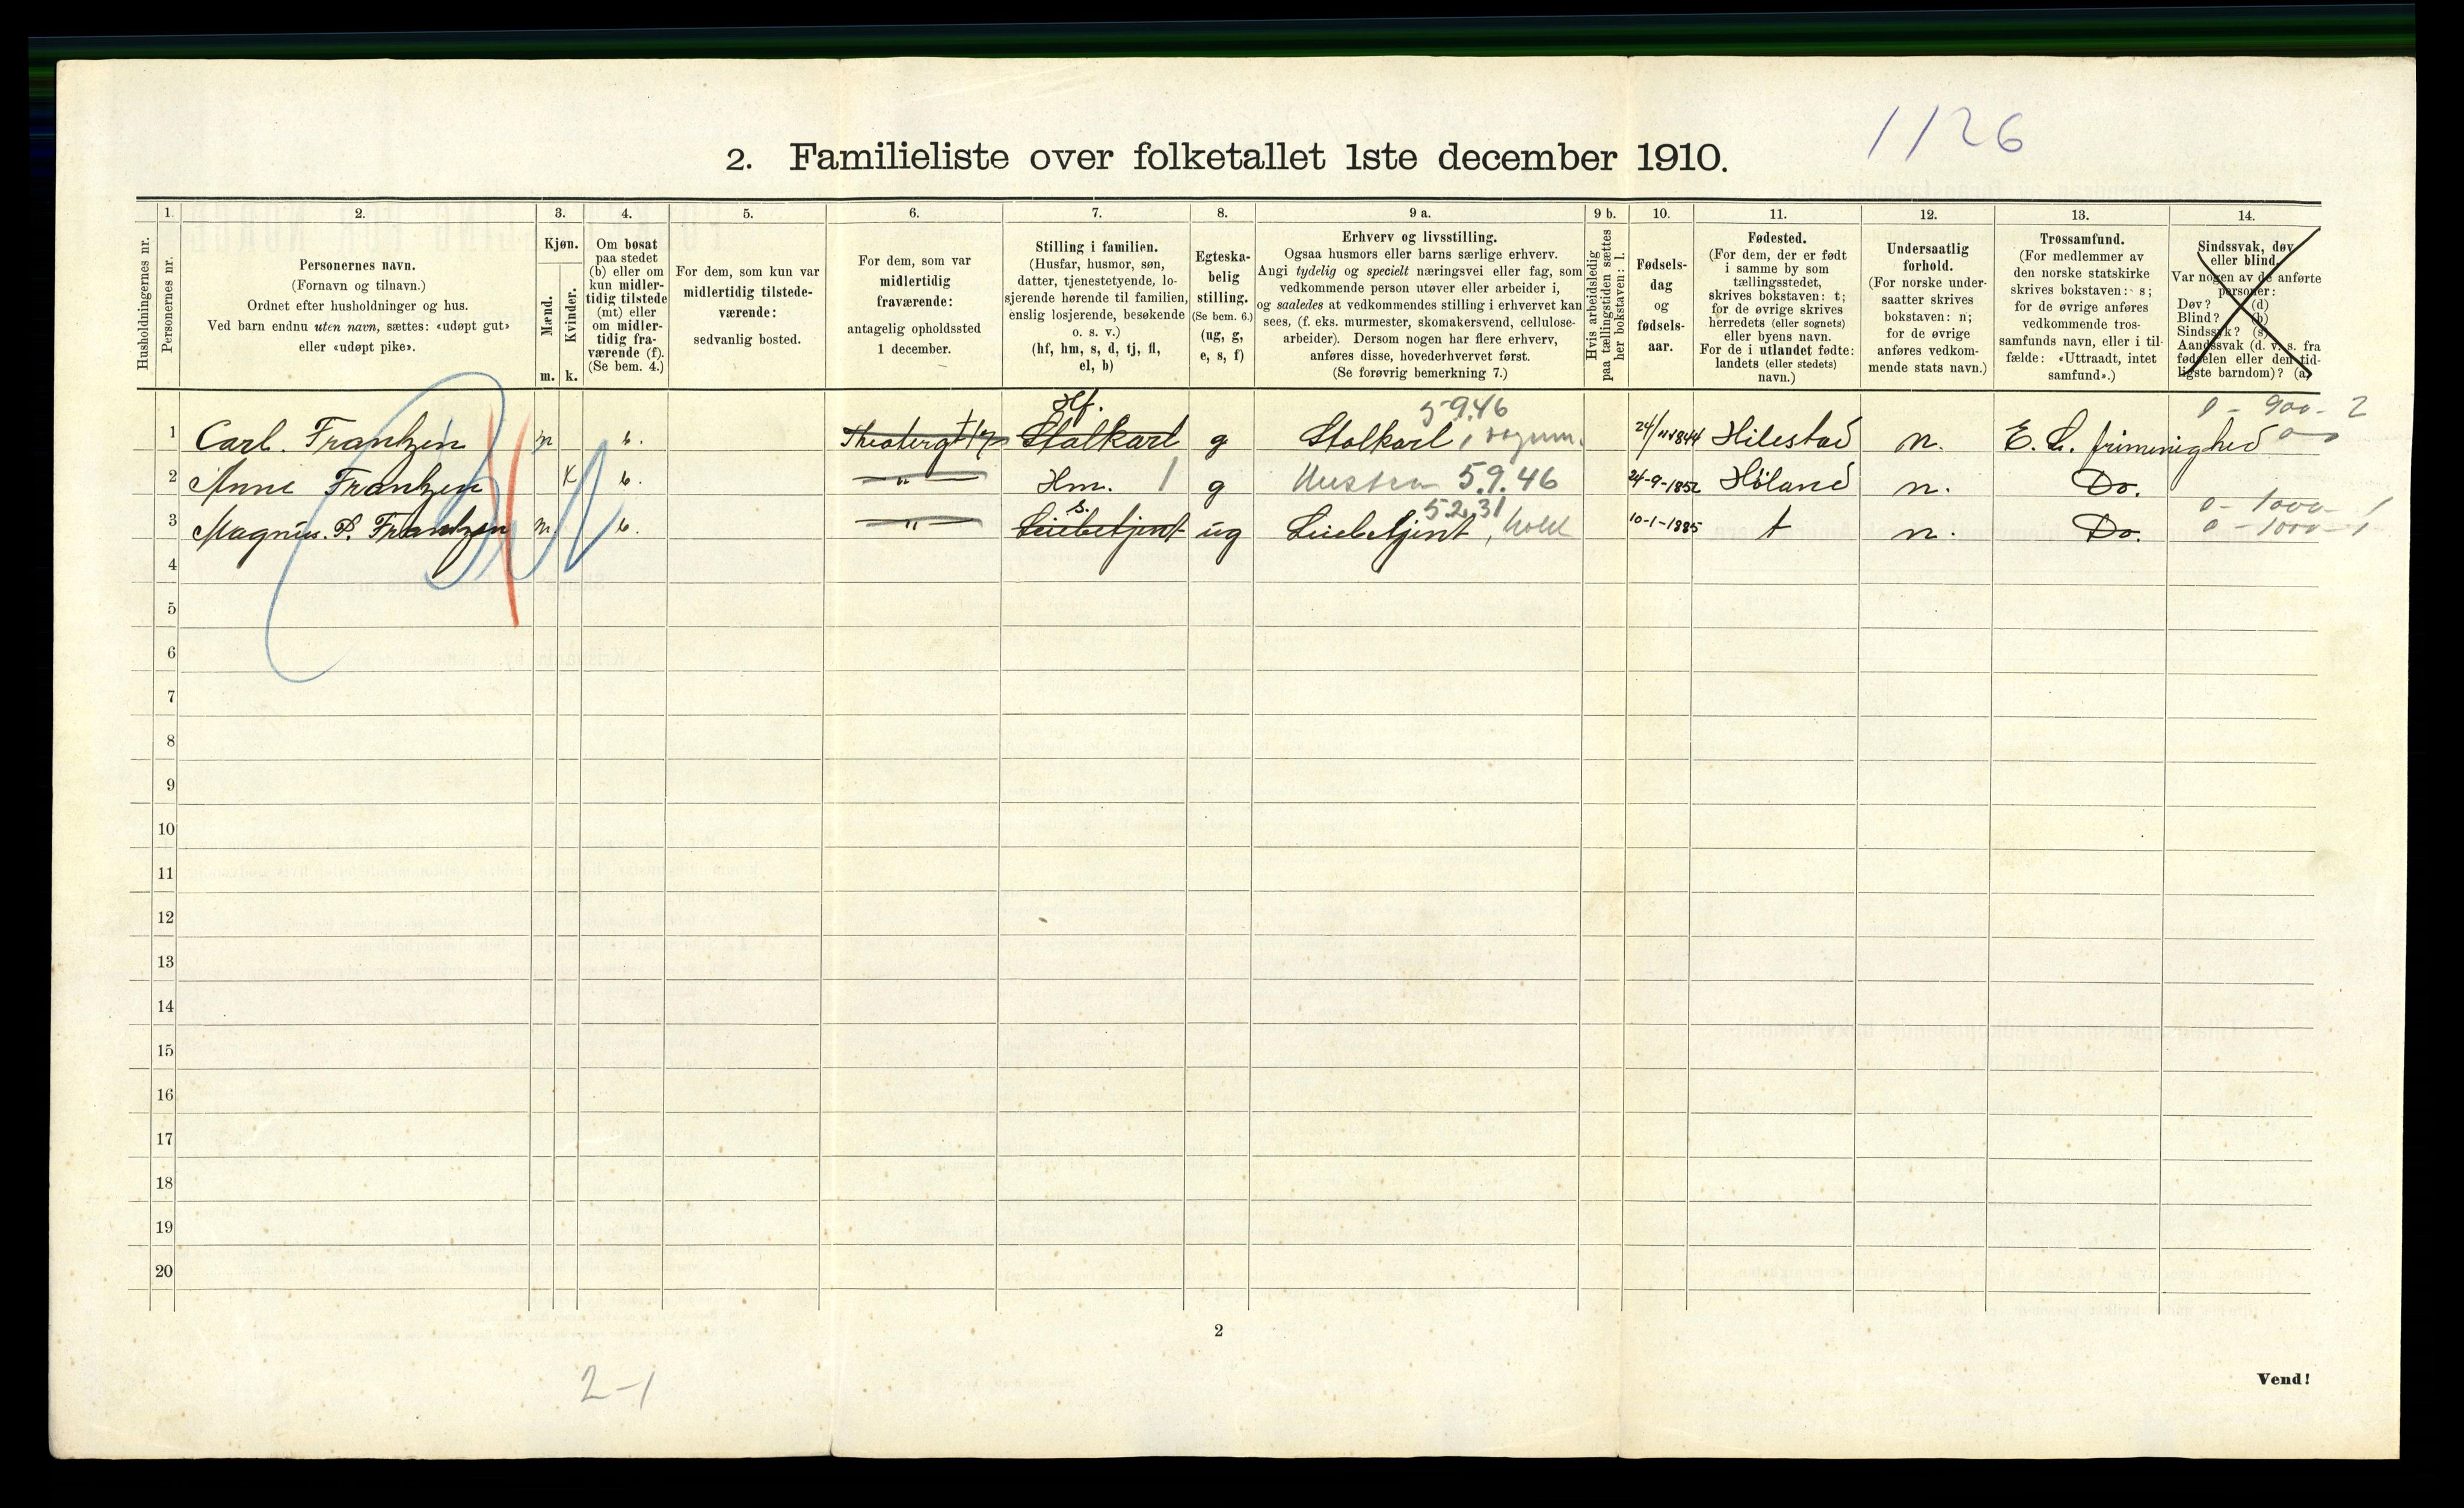 1126
2. Familieliste over folketallet 1ste december 1910.
1. 2. 3. 4. 5. 6. 7. 8. 9 a. 9 b. 10. 11. 12. 13. 14.
Husholdningernes nr.
Personernes nr.
Personernes navn.
(Fornavn og tilnavn.)
Ordnet efter husholdninger og hus.
Ved barn endnu uten navn, sættes: «udøpt gut»
eller «udøpt pike».
Kjøn.
Mænd.
Kvinder.
m. k.
Om bosat
paa stedet
(b) eller om
kun midler-
tidig tilstede
(mt) eller
om midler-
tidig fra-
værende (f).
(Se bem. 4.)
For dem, som kun var
midlertidig tilstede-
værende:
sedvanlig bosted.
For dem, som var
midlertidig
fraværende:
antagelig opholdssted
1 december.
Stilling i familien.
(Husfar, husmor, søn,
datter, tjenestetyende, lo-
sjerende hørende til familien,
enslig losjerende, besøkende
o. s. v.)
(hf, hm, s, d, tj, fl,
el, b)
Egteska-
belig
stilling.
(Se bem. 6.)
(ug, g,
e, s, f)
Erhverv og livsstilling.
Ogsaa husmors eller barns særlige erhverv.
Angi tydelig og specielt næringsvei eller fag, som
vedkommende person utøver eller arbeider i,
og saaledes at vedkommendes stilling i erhvervet kan
sees, (f. eks. murmester, skomakersvend, cellulose-
arbeider). Dersom nogen har flere erhverv,
anføres disse, hovederhvervet først.
(Se forøvrig bemerkning 7.)
Hvis arbeidsledig
paa tællingstiden sættes
her bokstaven: l.
Fødsels-
dag
og
fødsels-
aar.
Fødested.
(For dem, der er født
i samme by som
tællingsstedet,
skrives bokstaven: t;
for de øvrige skrives
herredets (eller sognets)
eller byens navn.
For de i utlandet fødte:
landets (eller stedets)
navn.)
Undersaatlig
forhold.
(For norske under-
saatter skrives
bokstaven: n;
for de øvrige
anføres vedkom-
mende stats navn.)
Trossamfund.
(For medlemmer av
den norske statskirke
skrives bokstaven: s;
for de øvrige anføres
vedkommende tros-
samfunds navn, eller i til-
fælde: «Uttraadt, intet
samfund».)
Sindssvak, døv
eller blind.
Var nogen av de anførte
personer:
Døv? (d)
Blind? (b)
Sindssvk? (s)
Aandssvak (d. v. s. fra
fødselen eller den tid-
ligste barndom)? (a)
Hf. 59.46 0 - 900 - 2
1 Carl. Frantzen m b. Stalkarl g Stalkarl 24/11 1844 Hilestad n. E. L. frimenighed
2 Anne Frantzen K b. " Hm. 1 g Hustru 5.9.46 24-9-1852 Höland n. Do.
s. 52.31 0 - 1000 - 1
3 Magnus. P. Frantzen m b. " ug 10-1-1885 t n. Do. 0 - 1000 - 1
4
5
6
7
8
9
10
11
12
13
14
15
16
17
18
19
20
2
2-1
Vend!